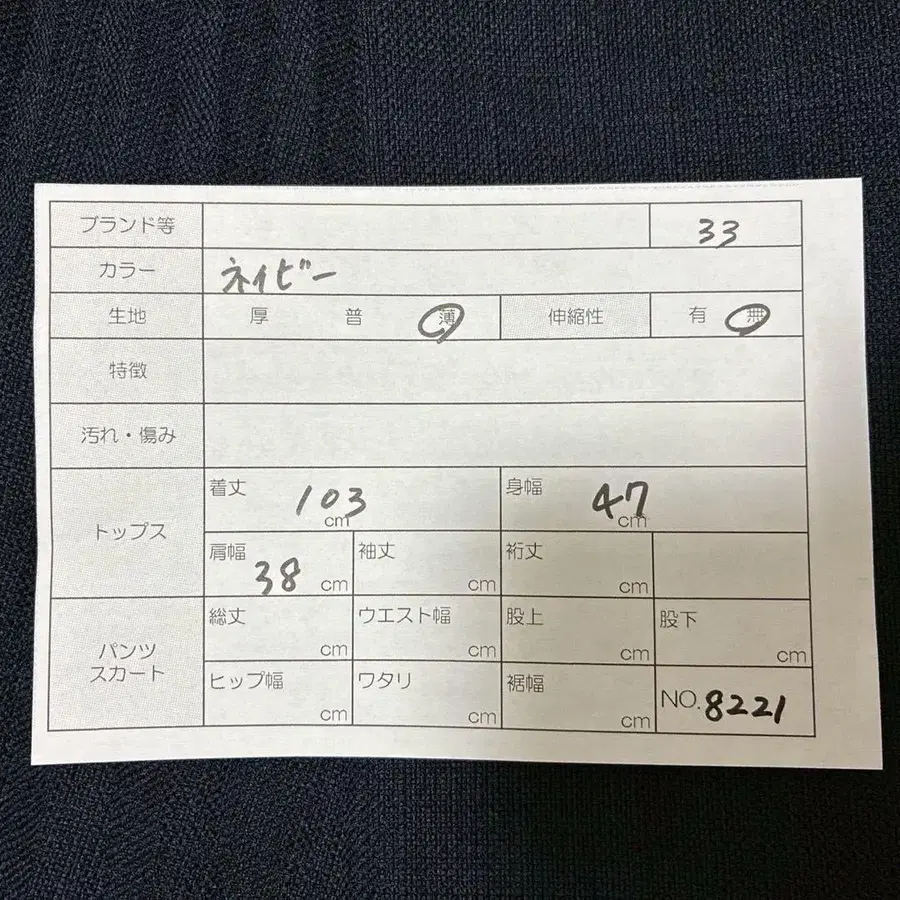 ブランド等 33
カラー ネイビー
生地 厚 普 薄 伸縮性 有 無
特徴
汚れ・傷み
トップス
着丈 103 cm 身幅 47 cm
肩幅 38 cm 袖丈 cm 裄丈 cm
パンツ
スカート
総丈 cm ウエスト幅 cm 股上 cm 股下 cm
ヒップ幅 cm ワタリ cm 裾幅 cm NO.8221